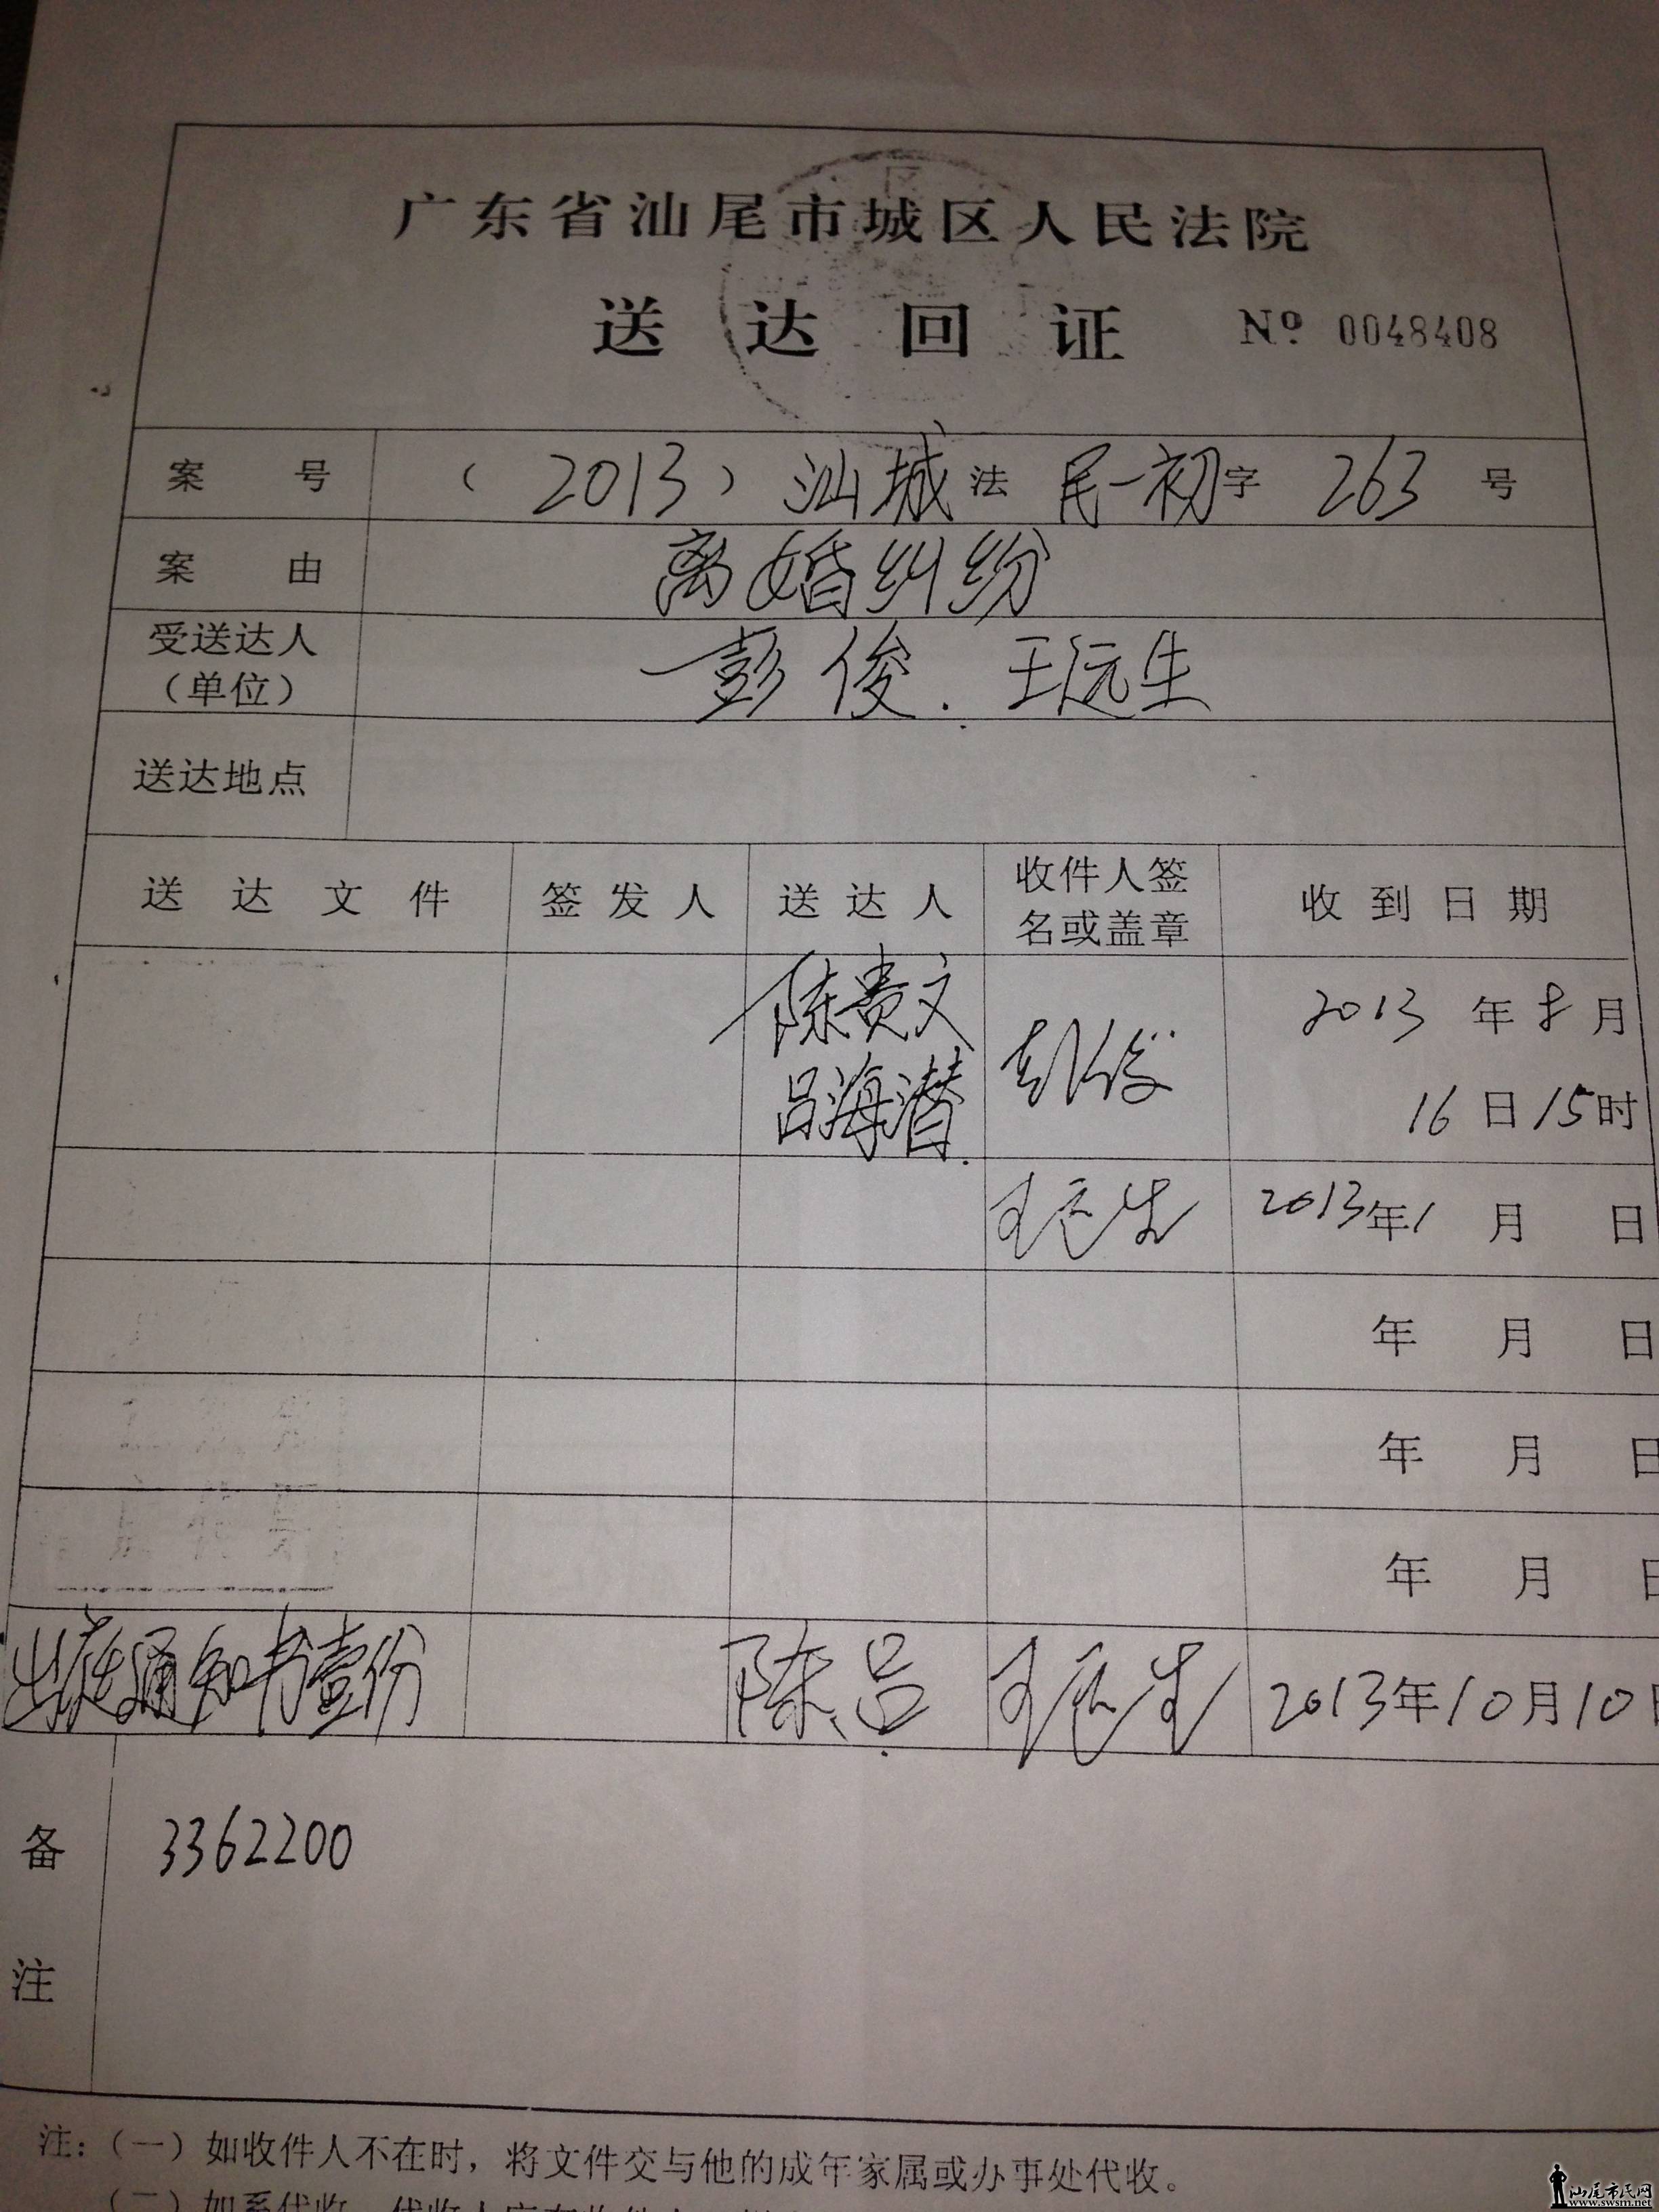 广东省汕尾市城区人民法院
送达回证 Nº 0048408
案号 (2013) 汕城法民一初字 263 号
案由 离婚纠纷
受送达人(单位) 彭俊.王远生
送达地点
送达文件 签发人 送达人 收件人签名或盖章 收到日期
陈贵文 吕海潜 彭俊 2013年8月16日15时
王远生 2013年1月 日
年 月 日
年 月 日
年 月 日
出庭通知书壹份 陈、吕 王远生 2013年10月10日
备注 3362200
注:(一)如收件人不在时,将文件交与他的成年家属或办事处代收。
汕尾市民网
www.swsm.net